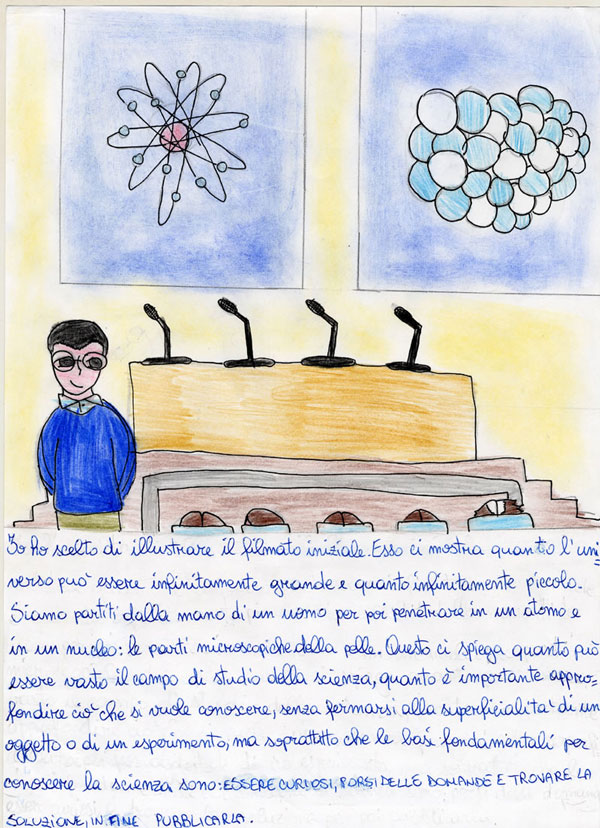 Io ho scelto di illustrare il filmato iniziale. Esso ci mostra quanto l'uni=
verso può essere infinitamente grande e quanto infinitamente piccolo.
Siamo partiti dalla mano di un uomo per poi penetrare in un atomo e
in un nucleo: le parti microscopiche della pelle. Questo ci spiega quanto può
essere vasto il campo di studio della scienza, quanto è importante appro=
fondire ciò che si vuole conoscere, senza fermarsi alla superficialità di un
oggetto o di un esperimento, ma soprattutto che le basi fondamentali per
conoscere la scienza sono: ESSERE CURIOSI, PORSI DELLE DOMANDE E TROVARE LA
SOLUZIONE, IN FINE PUBBLICARLA.